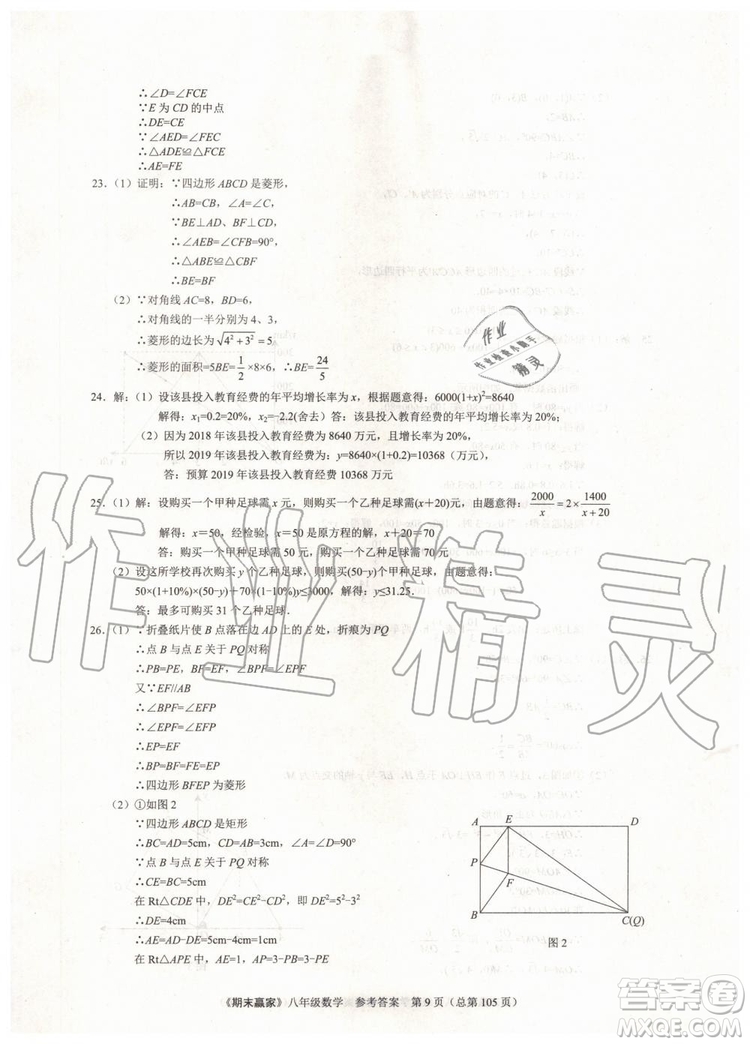 ∴∠D=∠FCE
∵E 为 CD 的中点
∴DE=CE
∵∠AED=∠FEC
∴△ADE≌△FCE
∴AE=FE
23.（1）证明：∵四边形 ABCD 是菱形，
∴AB=CB，∠A=∠C，
∵BE⊥AD、BF⊥CD，
∴∠AEB=∠CFB=90°，
∴△ABE≌△CBF
∴BE=BF
（2）∵对角线 AC=8，BD=6，
∴对角线的一半分别为 4、3，
∴菱形的边长为√(4²+3²)=5
∴菱形的面积=5BE=1/2×8×6，∴BE=24/5
24. 解：（1）设该县投入教育经费的年平均增长率为 x，根据题意得：6000(1+x)²=8640
解得：x₁=0.2=20%，x₂=-2.2(舍去) 答：该县投入教育经费的年平均增长率为 20%；
（2）因为 2018 年该县投入教育经费为 8640 万元，且增长率为 20%，
所以 2019 年该县投入教育经费为：y=8640×(1+0.2)=10368（万元）
答：预算 2019 年该县投入教育经费 10368 万元
25.（1）解：设购买一个甲种足球需 x 元，则购买一个乙种足球需(x＋20)元，由题意得：2000/x=2×1400/(x+20)
解得：x＝50，经检验，x＝50 是原方程的解，∴x＋20＝70
答：购买一个甲种足球需 50 元，购买一个乙种足球需 70 元
（2）设这所学校再次购买 y 个乙种足球，则购买(50-y)个甲种足球，由题意得：
50×(1+10%)×(50-y)＋70×(1-10%)y≤3000，解得：y≤31.25．
答：最多可购买 31 个乙种足球．
26.（1）∵折叠纸片使 B 点落在边 AD 上的 E 处，折痕为 PQ
∴点 B 与点 E 关于 PQ 对称
∴PB=PE，BF=EF，∠BPF=∠EPF
又∵EF//AB
∴∠BPF=∠EFP
∴∠EPF=∠EFP
∴EP=EF
∴BP=BF=FE=EP
∴四边形 BFEP 为菱形
（2）①如图 2
∵四边形 ABCD 是矩形
∴BC=AD=5cm，CD=AB=3cm，∠A=∠D=90°
∵点 B 与点 E 关于 PQ 对称
∴CE=BC=5cm
在 Rt△CDE 中，DE²=CE²-CD²，即 DE²=5²-3²
∴DE=4cm
∴AE=AD-DE=5cm-4cm=1cm
在 Rt△APE 中，AE=1，AP=3-PB=3-PE
A
E
D
P
F
B
C(Q)
图 2
《期末赢家》八年级数学 参考答案 第 9 页（总第 105 页）
作业精灵
作业
作业检查小助手
精灵
答案圈
MXQE.COM